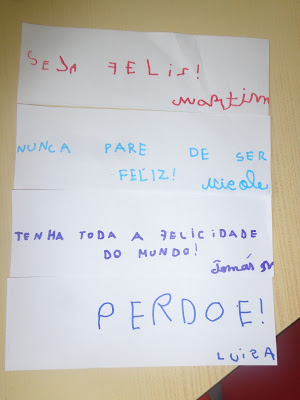 SEJA FELIS!
Martim
NUNCA PARE DE SER
FELIZ! Nicole
TENHA TODA A FELICIDADE
DO MUNDO!
Tomás M
PERDOE!
LUIZA